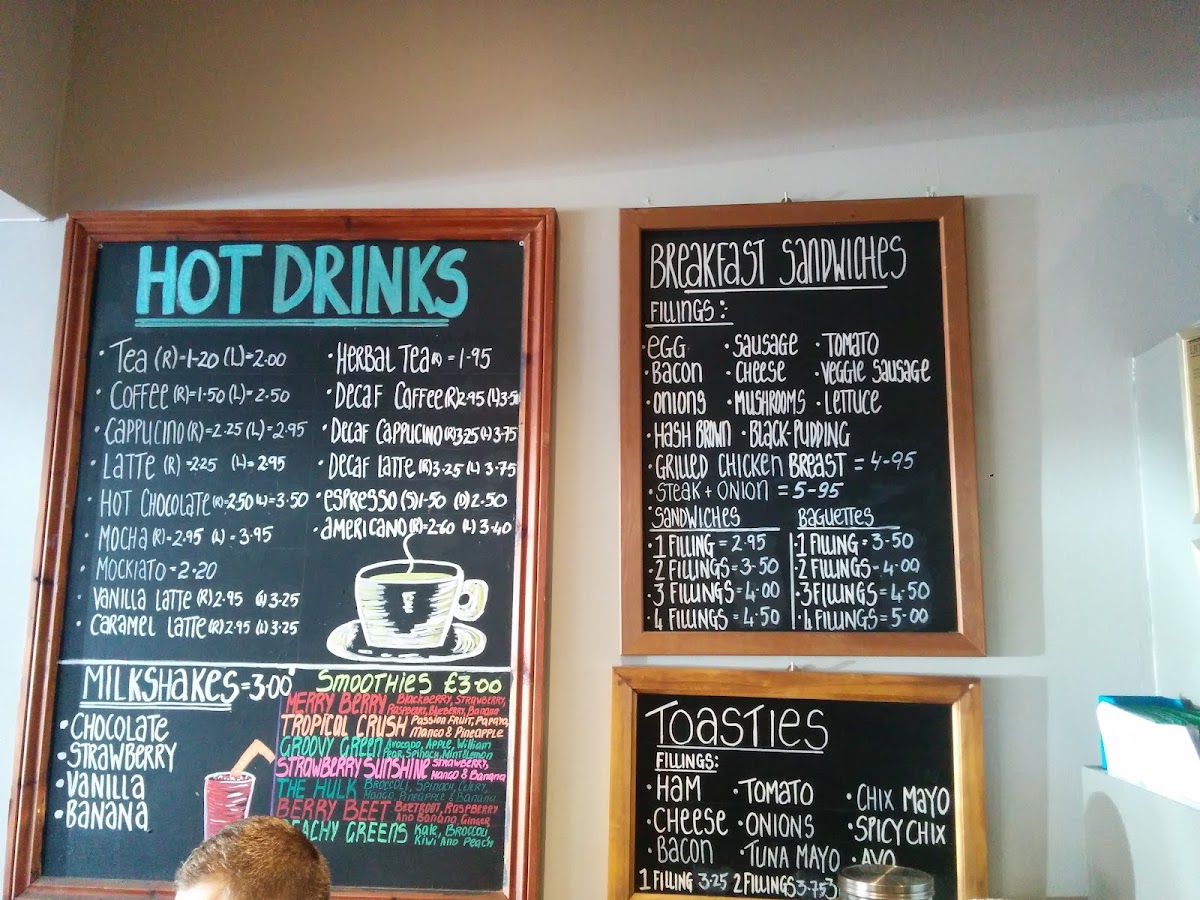 HOT DRINKS
• TEA (R)=1-20 (L)=2.00
• COFFEE (R)=1-50 (L)=2.50
• CAPPUCINO (R)=2.25 (L)=2.95
• LATTE (R)=2.25 (L)=2.95
• HOT CHOCOLATE (R)=2.50 (L)=3.50
• MOCHA (R)=2.95 (L)=3.95
• MOCKIATO=2-20
• VANILLA LATTE (R)2.95 (L)3.25
• CARAMEL LATTE (R)2.95 (L)3.25
• HERBAL TEA (R)=1.95
• DECAF COFFEE (R)2.95 (L)3.5
• DECAF CAPPUCINO (R)3.25 (L)3.75
• DECAF LATTE (R)3.25 (L)3.75
• ESPRESSO (S)1-50 (D)2-50
• AMERICANO (R)=2-60 (L)3.40
MILKSHAKES=3.00
• CHOCOLATE
• STRAWBERRY
• VANILLA
• BANANA
SMOOTHIES £3.00
MERRY BERRY BLACKBERRY, STRAWBERRY,
RASPBERRY, BLUEBERRY, BANANA
TROPICAL CRUSH PASSION FRUIT, PAPAYA,
MANGO & PINEAPPLE
GROOVY GREEN AVOCADO, APPLE, WILLIAM
PEAR, SPINACH, MINT & LEMON
STRAWBERRY SUNSHINE STRAWBERRY,
MANGO & BANANA
THE HULK BROCCOLI, SPINACH, CELERY,
MANGO, PINEAPPLE & BANANA
BERRY BEET BEETROOT, RASPBERRY
AND BANANA, GINGER
ACHY GREENS KALE, BROCCOLI
KIWI AND PEACH
BREAKFAST SANDWICHES
FILLINGS:
• EGG • SAUSAGE • TOMATO
• BACON • CHEESE • VEGGIE SAUSAGE
• ONIONS • MUSHROOMS • LETTUCE
• HASH BROWN • BLACK-PUDDING
• GRILLED CHICKEN BREAST = 4-95
• STEAK + ONION = 5-95
SANDWICHES
• 1 FILLING = 2.95
• 2 FILLINGS = 3.50
• 3 FILLINGS = 4.00
4 FILLINGS = 4.50
BAGUETTES
• 1 FILLING = 3-50
• 2 FILLINGS - 4.00
• 3 FILLINGS = 4.50
• 4 FILLINGS = 5-00
TOASTIES
FILLINGS:
• HAM • TOMATO • CHIX MAYO
• CHEESE • ONIONS • SPICY CHIX
• BACON • TUNA MAYO • AVO
1 FILLING 3.25 2 FILLINGS 3.75 3